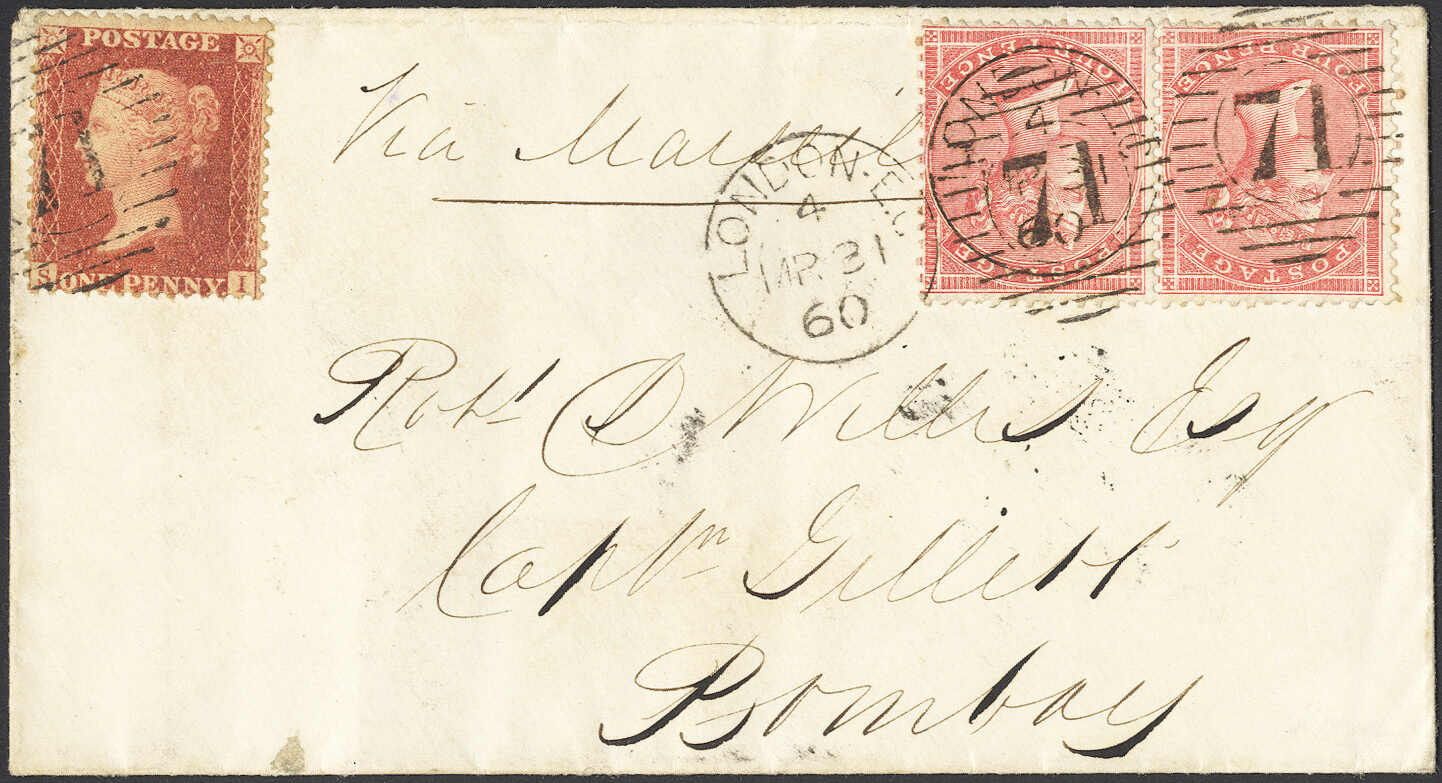 POSTAGE
S ONE PENNY I
Via
FOUR PENCE
POSTAGE
FOUR PENCE
POSTAGE
71
71
LONDON·E.C
4
MR 31
60
LONDON
4
60
Robt D Willis Esq
Captn Gillett
Bombay